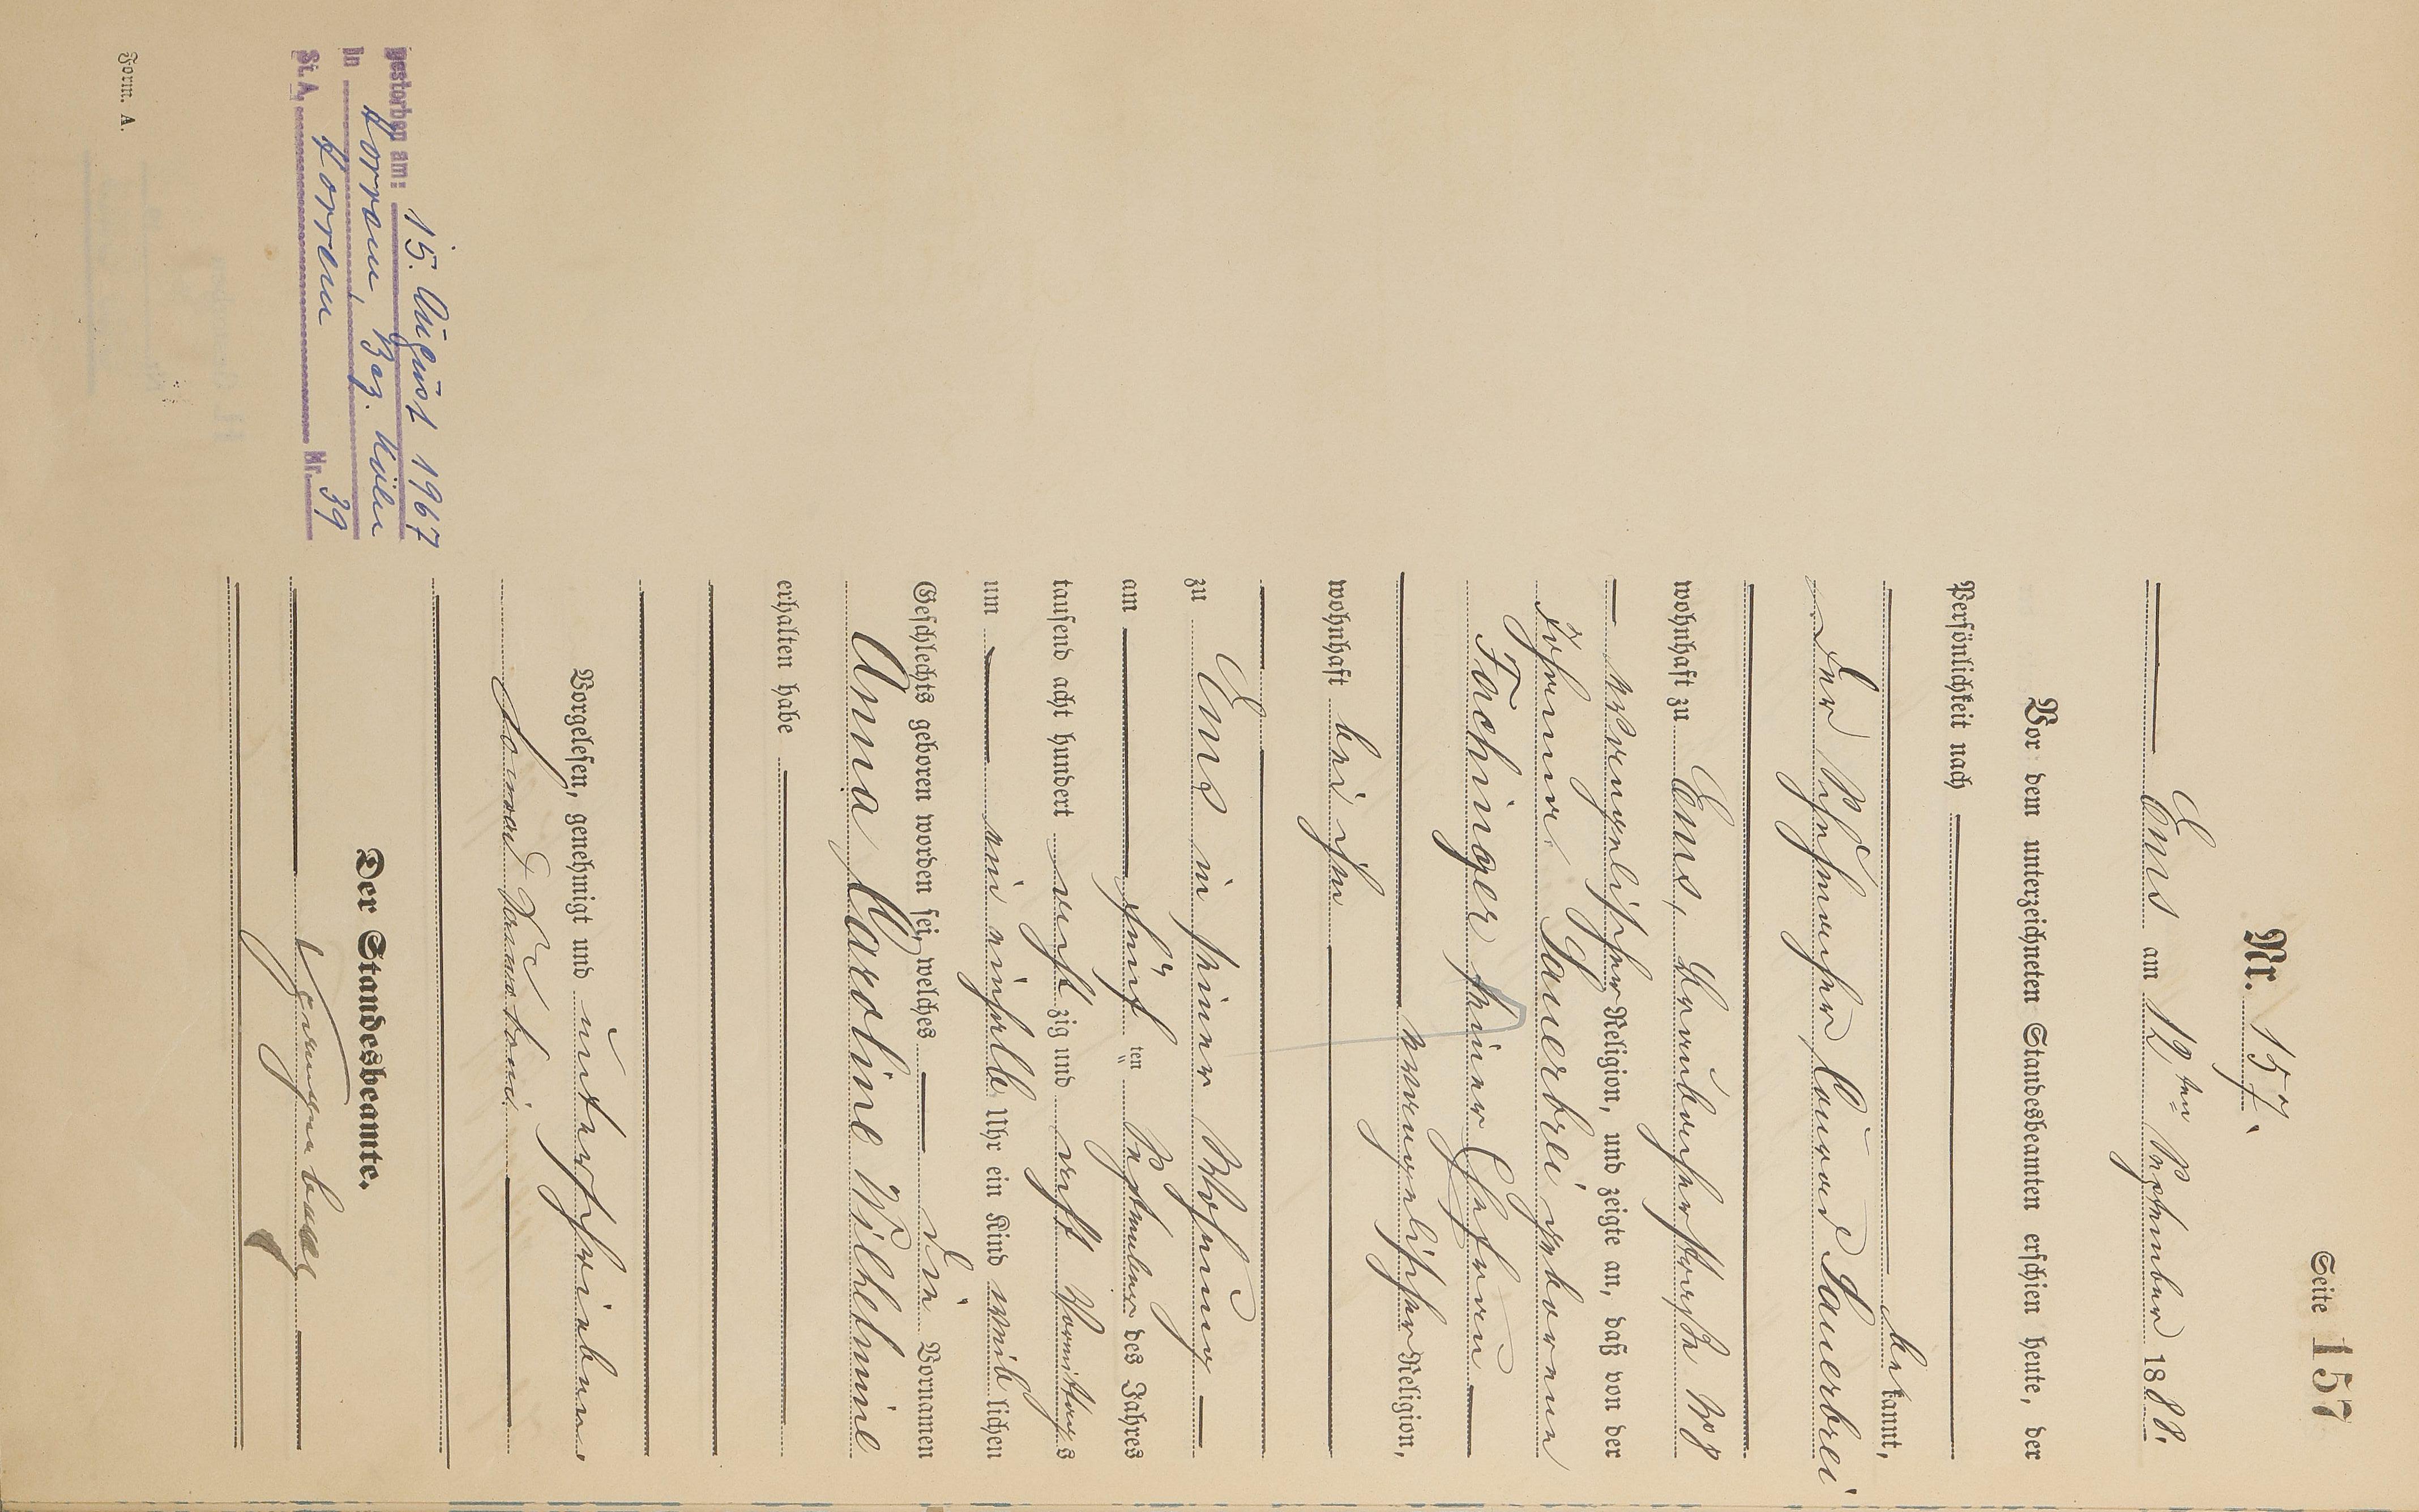 Seite 157
Nr. 157.
Ems am 12ten September 1888.
Vor dem unterzeichneten Standesbeamten erschien heute, der
Persönlichkeit nach
bekannt,
der Schuhmacher Conrad Sauerbrei
wohnhaft zu Ems,
evangelischer Religion, und zeigte an, daß von der
Johanna Sauerbrei geborene
Fachinger seiner Ehefrau
evangelischer Religion,
wohnhaft bei ihm
zu Ems in seiner Wohnung
am fünften September des Jahres
tausend acht hundert achtzig und acht Vormittags
um ein einhalb Uhr ein Kind weiblichen
Geschlechts geboren worden sei, welches die Vornamen
Anna Caroline Wilhelmine
erhalten habe
Vorgelesen, genehmigt und unterschrieben
Conrad
Der Standesbeamte.
gestorben am: 15. August 1967
in Horrem, Bez. Köln
St. A. Horrem Nr. 39
Form. A.